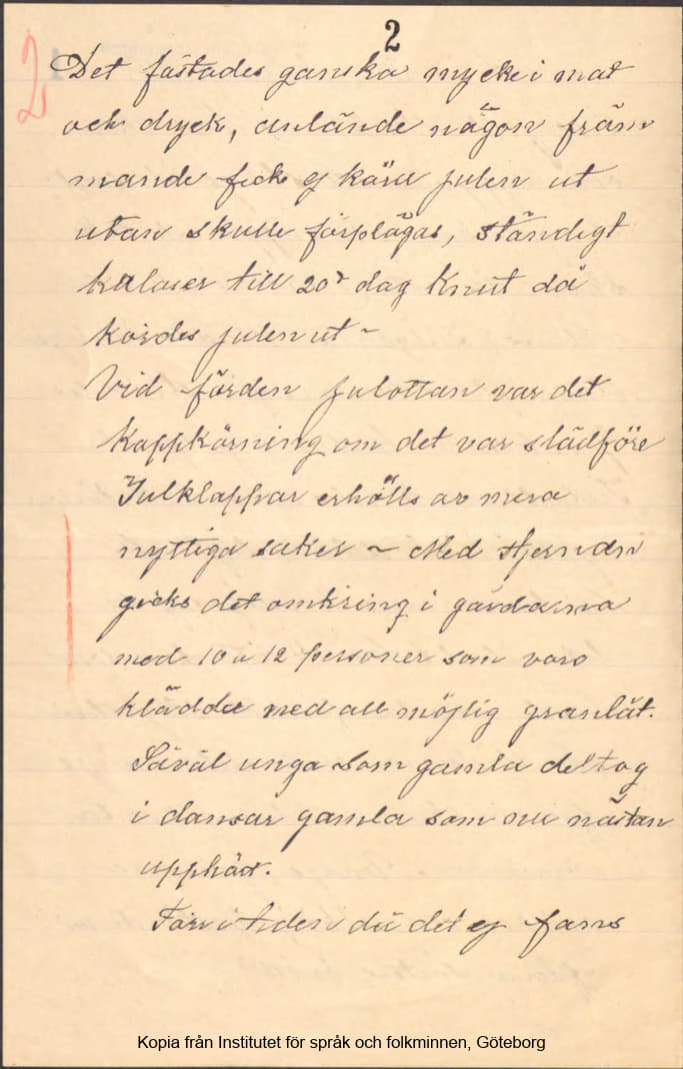 2
2
Det fästades ganska mycke i mat
och dryck, anlände någon främ
mande fick ej köra julen ut
utan skulle förplägas, ständigt
kalaser till 20de dag Knut då
kördes julen ut ~
Vid färden julottan var det
kappkörning om det var slädföre
Julklappar erhölls av mera
nyttiga saker ~ Med stjernan
gicks det omkring i gårdarna
med 10 a 12 personer som voro
klädda med all möjlig granlåt.
Såväl unga som gamla deltog
i dansar gamla som nu nästan
upphört.
Förr i tiden då det ej fans
Kopia från Institutet för språk och folkminnen, Göteborg